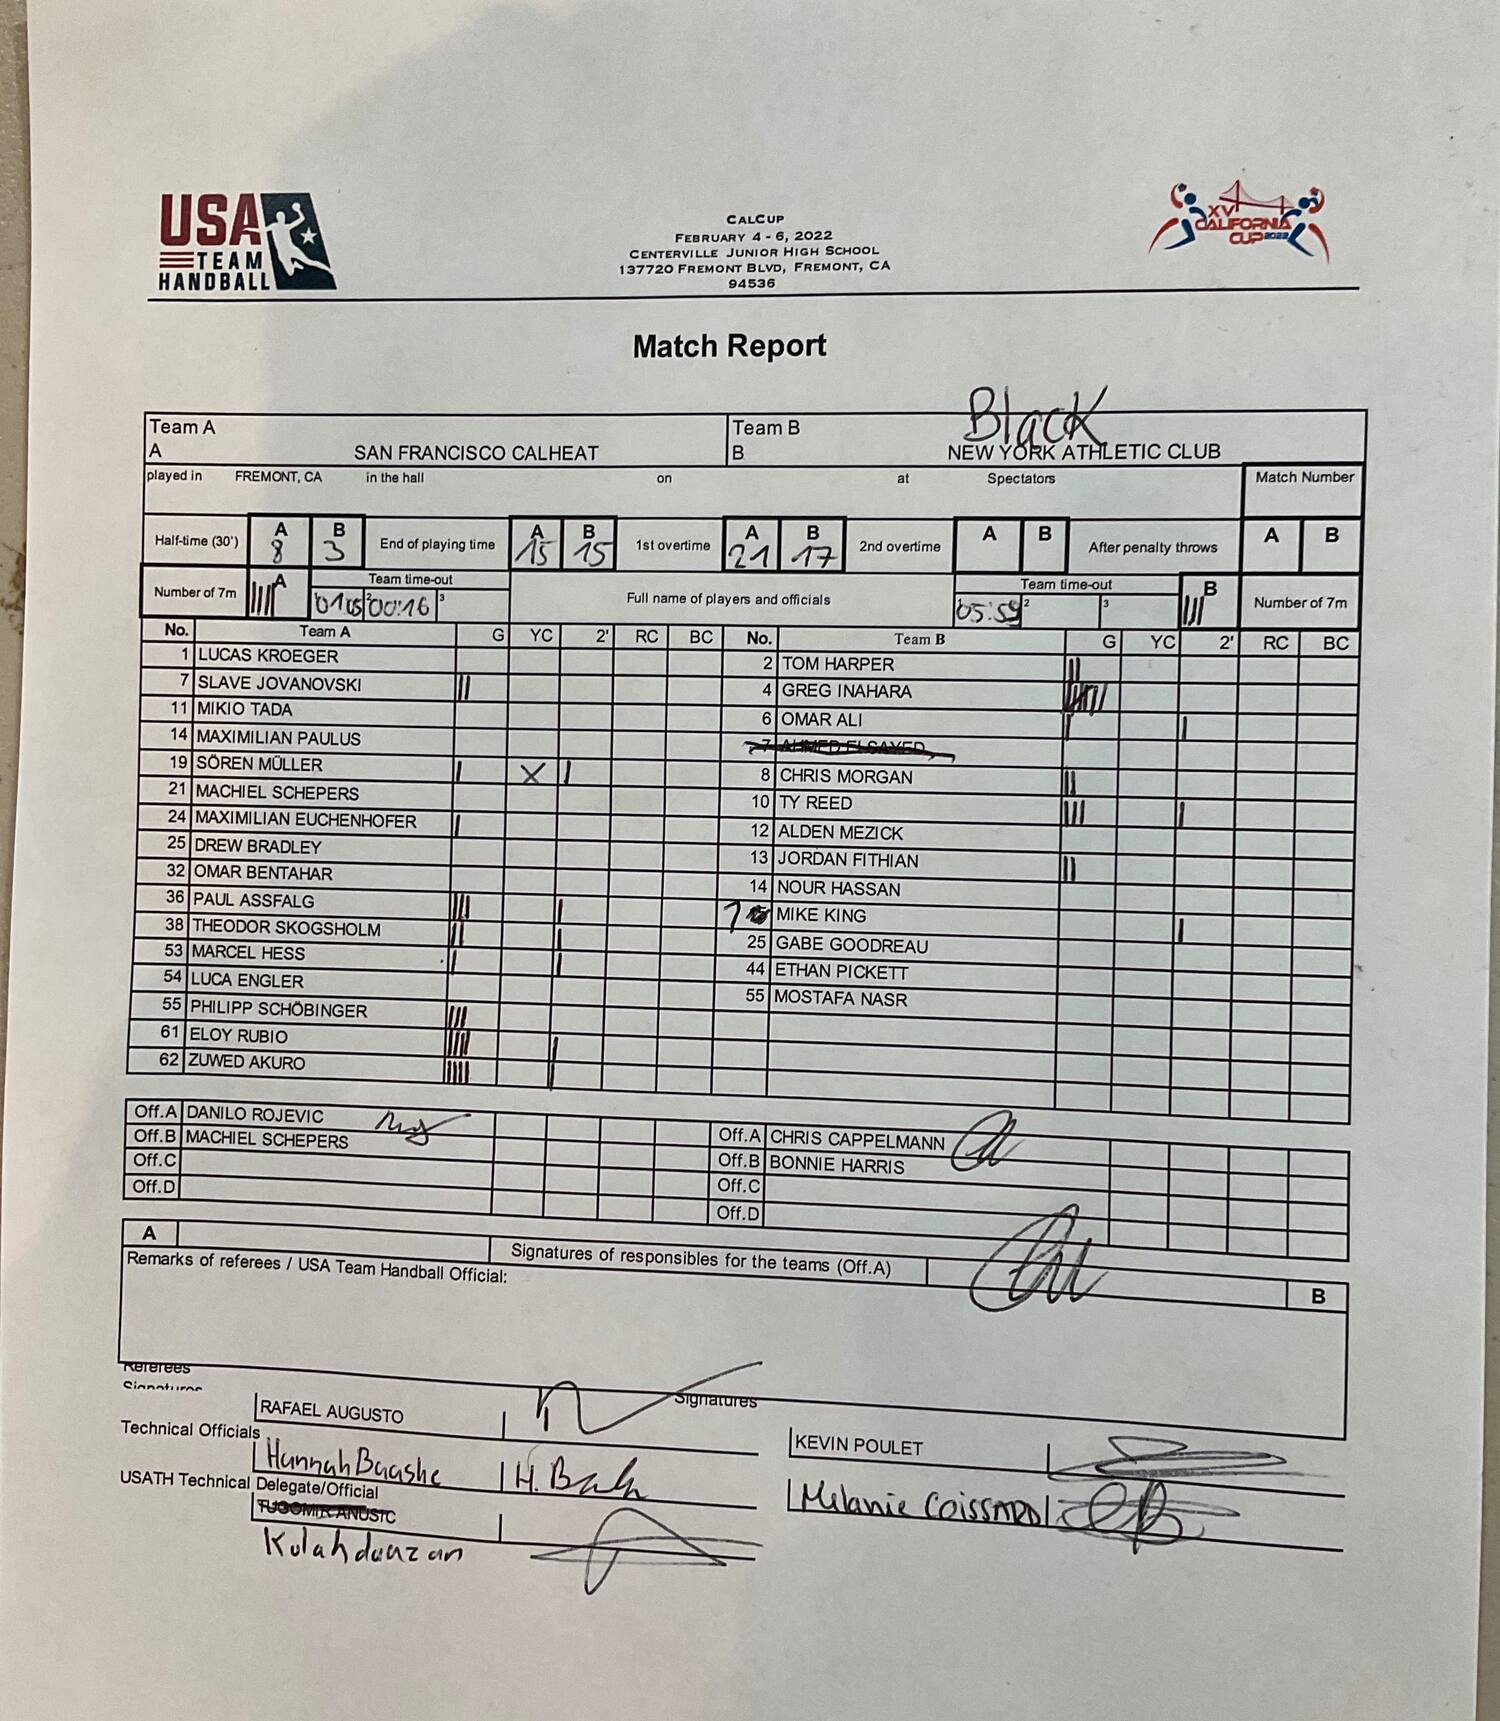 USA
TEAM
HANDBALL
CALCUP
FEBRUARY 4 - 6, 2022
CENTERVILLE JUNIOR HIGH SCHOOL
137720 FREMONT BLVD, FREMONT, CA
94536
XV
CALIFORNIA
CUP 2022
Match Report
Black
Team A Team B
A SAN FRANCISCO CALHEAT B NEW YORK ATHLETIC CLUB
played in FREMONT, CA in the hall on at Spectators Match Number
Half-time (30') A 8 B 3 End of playing time A 15 B 15 1st overtime A 21 B 17 2nd overtime A B After penalty throws A B
Number of 7m A Team time-out 2 00:16 3 Full name of players and officials Team time-out 05:59 2 3 B Number of 7m
No. Team A G YC 2' RC BC No. Team B G YC 2' RC BC
1 LUCAS KROEGER 2 TOM HARPER
7 SLAVE JOVANOVSKI 4 GREG INAHARA
11 MIKIO TADA 6 OMAR ALI
14 MAXIMILIAN PAULUS 7 AHMED ELSAYED
19 SÖREN MÜLLER X 8 CHRIS MORGAN
21 MACHIEL SCHEPERS 10 TY REED
24 MAXIMILIAN EUCHENHOFER 12 ALDEN MEZICK
25 DREW BRADLEY 13 JORDAN FITHIAN
32 OMAR BENTAHAR 14 NOUR HASSAN
36 PAUL ASSFALG 7 MIKE KING
38 THEODOR SKOGSHOLM 25 GABE GOODREAU
53 MARCEL HESS 44 ETHAN PICKETT
54 LUCA ENGLER 55 MOSTAFA NASR
55 PHILIPP SCHÖBINGER
61 ELOY RUBIO
62 ZUWED AKURO
Off.A DANILO ROJEVIC Off.A CHRIS CAPPELMANN
Off.B MACHIEL SCHEPERS Off.B BONNIE HARRIS
Off.C Off.C
Off.D Off.D
A Signatures of responsibles for the teams (Off.A) B
Remarks of referees / USA Team Handball Official:
Referees
Signatures Signatures
RAFAEL AUGUSTO KEVIN POULET
Technical Officials
Hannah Baashe H. Melanie COISSARD
USATH Technical Delegate/Official
TUGOMIR ANUSIC
Kolahdouzan